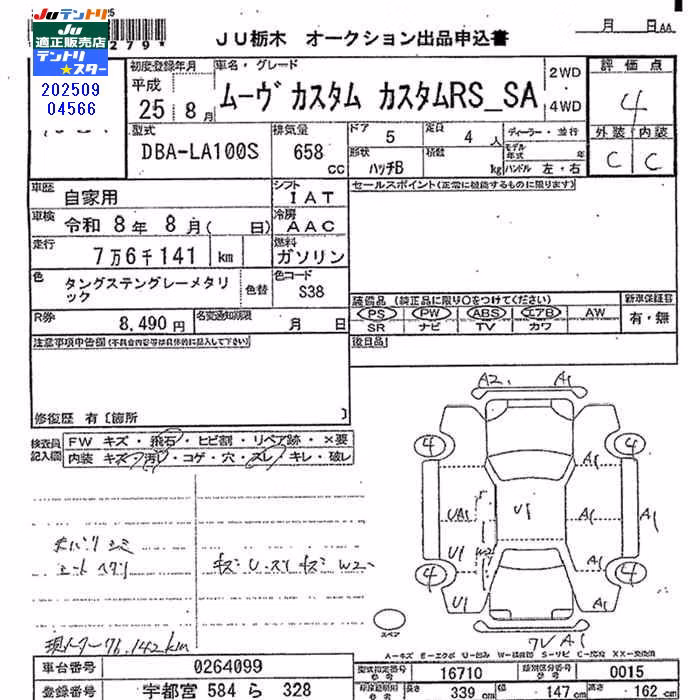 JUテントリ
JU
適正販売店
テントリ
スター
202509
04566
279*
JU栃木 オークション出品申込書
月 日 AA
初度登録年月
平成
25年8月
車名・グレード
ムーヴ カスタム カスタムRS_SA
2WD
・
4WD
評価点
4
外装 内装
C C
型式
DBA-LA100S
排気量
658
CC
ドア
5
定員
4人
形状
ハッチB
積載
kg
ディーラー・並行
モデル
年式 年
ハンドル 左・右
車歴
自家用
シフト
IAT
セールスポイント(正常に機能するものに限ります)
車検
令和 8年 8月( 日)
冷房
AAC
走行
7万6千141 km
燃料
ガソリン
色
タングステングレーメタリ
ック
色替
色コード
S38
装備品 (純正品に限り○をつけてください)
PS PW ABS エアB AW
SR ナビ TV カワ
新車保証書
有・無
R券
8,490円
名変通知期限
月 日
後日品
注意事項申告欄(不具合内容等は具体的に記入して下さい)
修復歴 有〔箇所 〕
検査員
記入欄
FW キズ・飛石・ヒビ割・リペア跡・×要
内装 キズ・汚レ・コゲ・穴・スレ・キレ・破レ
シミ
キズ U.スリ キズ W2
現メーター76,142km
A2. A1
4 4
A1
UA1 U1 A1 A1
U1 W2
4 4
U1 A1
スペア
A1
A=キズ E=エクボ U=凹み W=補修跡 S=サビ C=腐食 XX=交換済
車台番号
0264099
型式指定番号
16710
類別区分番号
0015
登録番号
宇都宮 584 ら 328
長さ
339 cm
幅
147 cm
高さ
162 cm